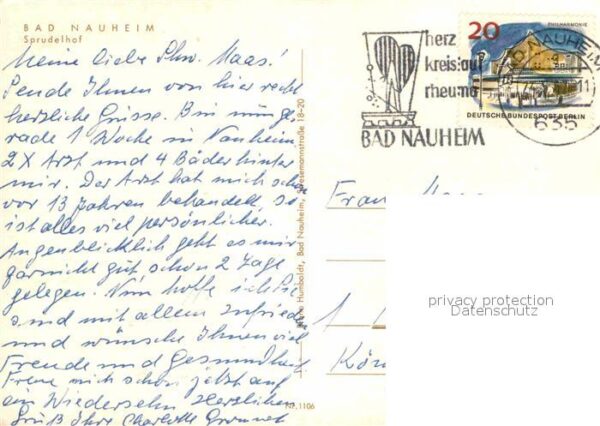 BAD NAUHEIM
Sprudelhof
Meine liebe Schw. Maas!
Sende Ihnen von hier recht
herzliche Grüsse. Bin nun ge-
rade 1 Woche in Nauheim
2 X Arzt und 4 Bäder hinter
mir. Der Arzt hat mich schon
vor 13 Jahren behandelt, so
ist alles viel persönlicher.
Augenblicklich geht es mir
garnicht gut, schon 2 Tage
gelegen. Nun hoffe ich Sie
sind mit allem zufrieden
und wünsche Ihnen viel
Freude und Gesundheit
Freue mich schon jetzt auf
ein Wiedersehn Herzlichen
Gruß Ihre Charlotte
Humboldt, Bad Nauheim, Stresemannstraße 18-20
Nr. 1106
herz
kreislauf
rheuma
BAD NAUHEIM
20
PHILHARMONIE
DEUTSCHE BUNDESPOST BERLIN
BAD NAUHEIM
635
Frau
1
privacy protection
Datenschutz